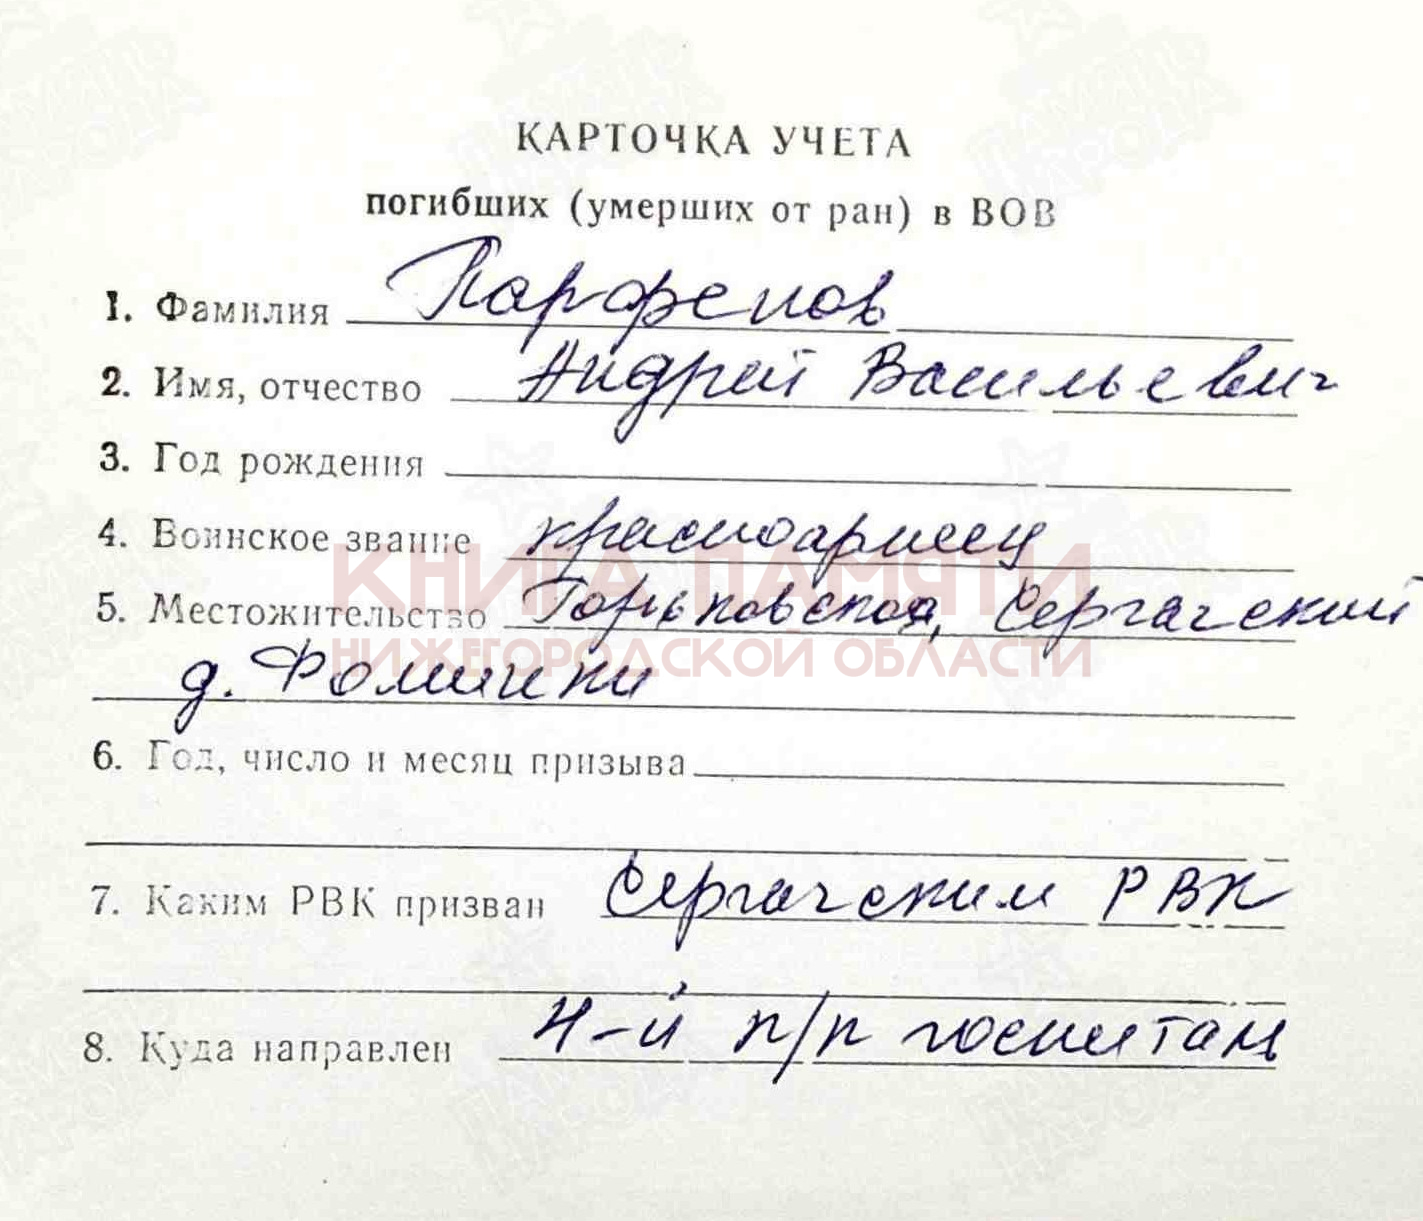 КАРТОЧКА УЧЕТА
погибших (умерших от ран) в ВОВ
1. Фамилия Парфенов
2. Имя, отчество Андрей Васильевич
3. Год рождения
4. Воинское звание красноармеец
КНИГА ПАМЯТИ
5. Местожительство Горьковская, Сергачский
НИЖЕГОРОДСКОЙ ОБЛАСТИ
д. Фомички
6. Год, число и месяц призыва
7. Каким РВК призван Сергачским РВК
8. Куда направлен 4-й п/п госпитал